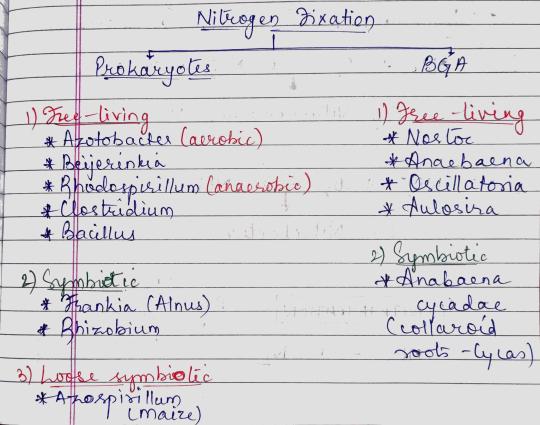 Nitrogen Fixation
Prokaryotes
BGA
1) Free-living
* Azotobacter (aerobic)
* Beijerinkia
* Rhodospirillum (anaerobic)
* Clostridium
* Bacillus
2) Symbiotic
* Frankia (Alnus)
* Rhizobium
3) Loose symbiotic
* Azospirillum
(maize)
1) Free-living
* Nostoc
* Anaebaena
* Oscillatoria
* Aulosira
2) Symbiotic
* Anabaena
cycadae
(collaroid
roots - Cycas)